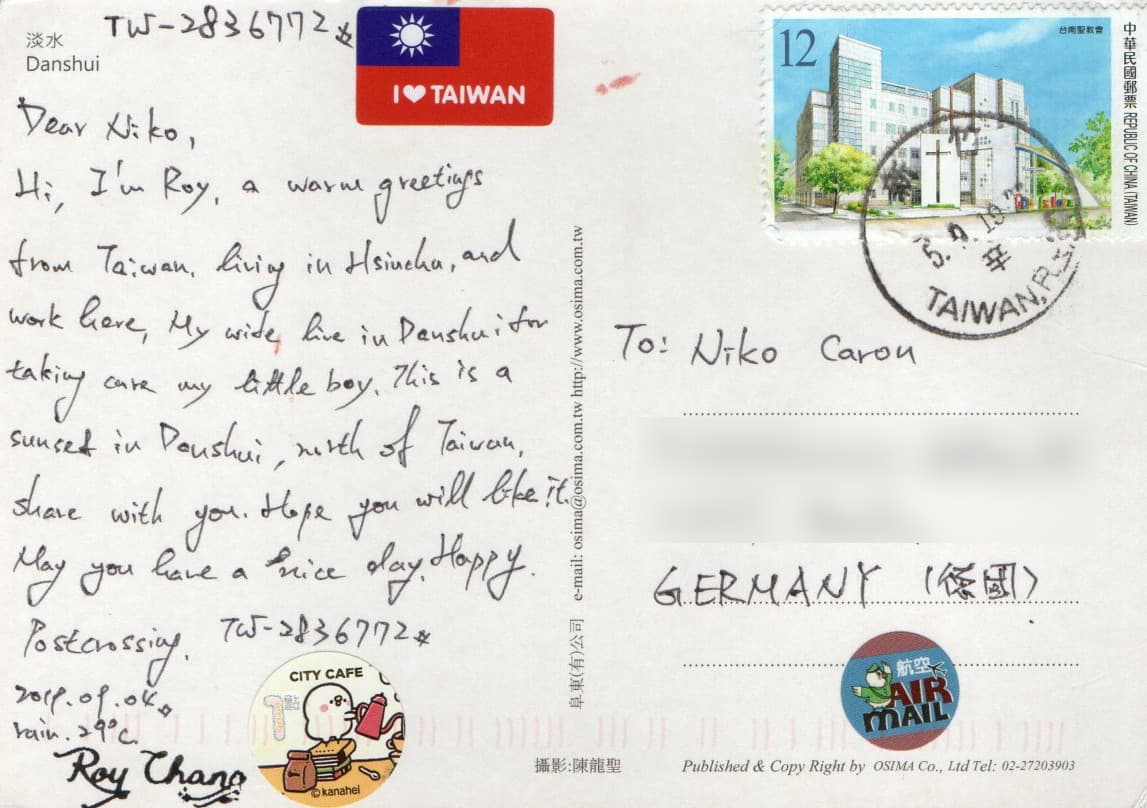 淡水
Danshui
TW-2836772
I ♥ TAIWAN
Dear Niko,
Hi, I'm Roy, a warm greetings
from Taiwan, living in Hsinchu, and
work here, My wide, live in Danshui for
taking care my little boy. This is a
sunset in Danshui, north of Taiwan,
share with you. Hope you will like it.
May you have a nice day, Happy.
Postcrossing. TW-2836772
2019.09.04
rain. 29°C.
Roy Chang
CITY CAFE
1點
©kanahei
e-mail: osima@osima.com.tw http://www.osima.com.tw
阜東(有)公司
攝影:陳龍聖
12
台南聖教會
中華民國郵票 REPUBLIC OF CHINA (TAIWAN)
5. 9. 19
TAIWAN, R.O.C.
To: Niko Caron
GERMANY (德國)
航空
AIR
MAIL
Published & Copy Right by OSIMA Co., Ltd Tel: 02-27203903